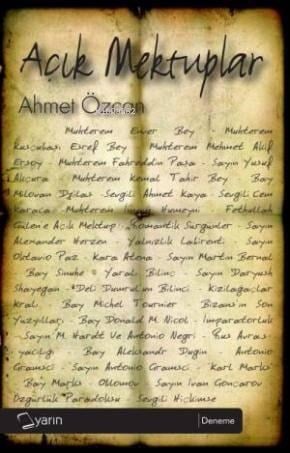 Açık Mektuplar
Ahmet Özcan
Muhterem Enver Bey - Muhterem
Kuşçubaşı Eşref Bey - Muhterem Mehmet Akif
Ersoy - Muhterem Fahreddin Paşa - Sayın Yusuf
Akçura - Muhterem Kemal Tahir Bey - Bay
Milovan Djilas - Sevgili Ahmet Kaya - Sevgili Cem
Karaca - Muhterem İmam Humeyni - Fethullah
Gülen'e Açık Mektup - Romantik Sürgünler - Sayın
Alexander Herzen - Yalnızlık Labirenti - Sayın
Oktavio Paz - Kara Atena - Sayın Martin Bernal
- Bay Sinuhe - Yaralı Bilinç - Sayın Daryush
Shayegan - "Deli Dumrul'un Bilinci" - Kızılağaçlar
Kralı - Bay Michel Tournier - Bizans'ın Son
Yüzyılları - Bay Donald M. Nicol - İmparatorluk
- Sayın M. Hardt Ve Antonio Negri - Rus Avras-
yacılığı - Bay Aleksandr Dugin - Antonio
Gramsci - Sayın Antonio Gramsci - Karl Marks
- Bay Marks - Oblomov - Sayın Ivan Gonçarov -
Özgürlük Paradoksu - Sevgili Hiçkimse
yarın
Deneme